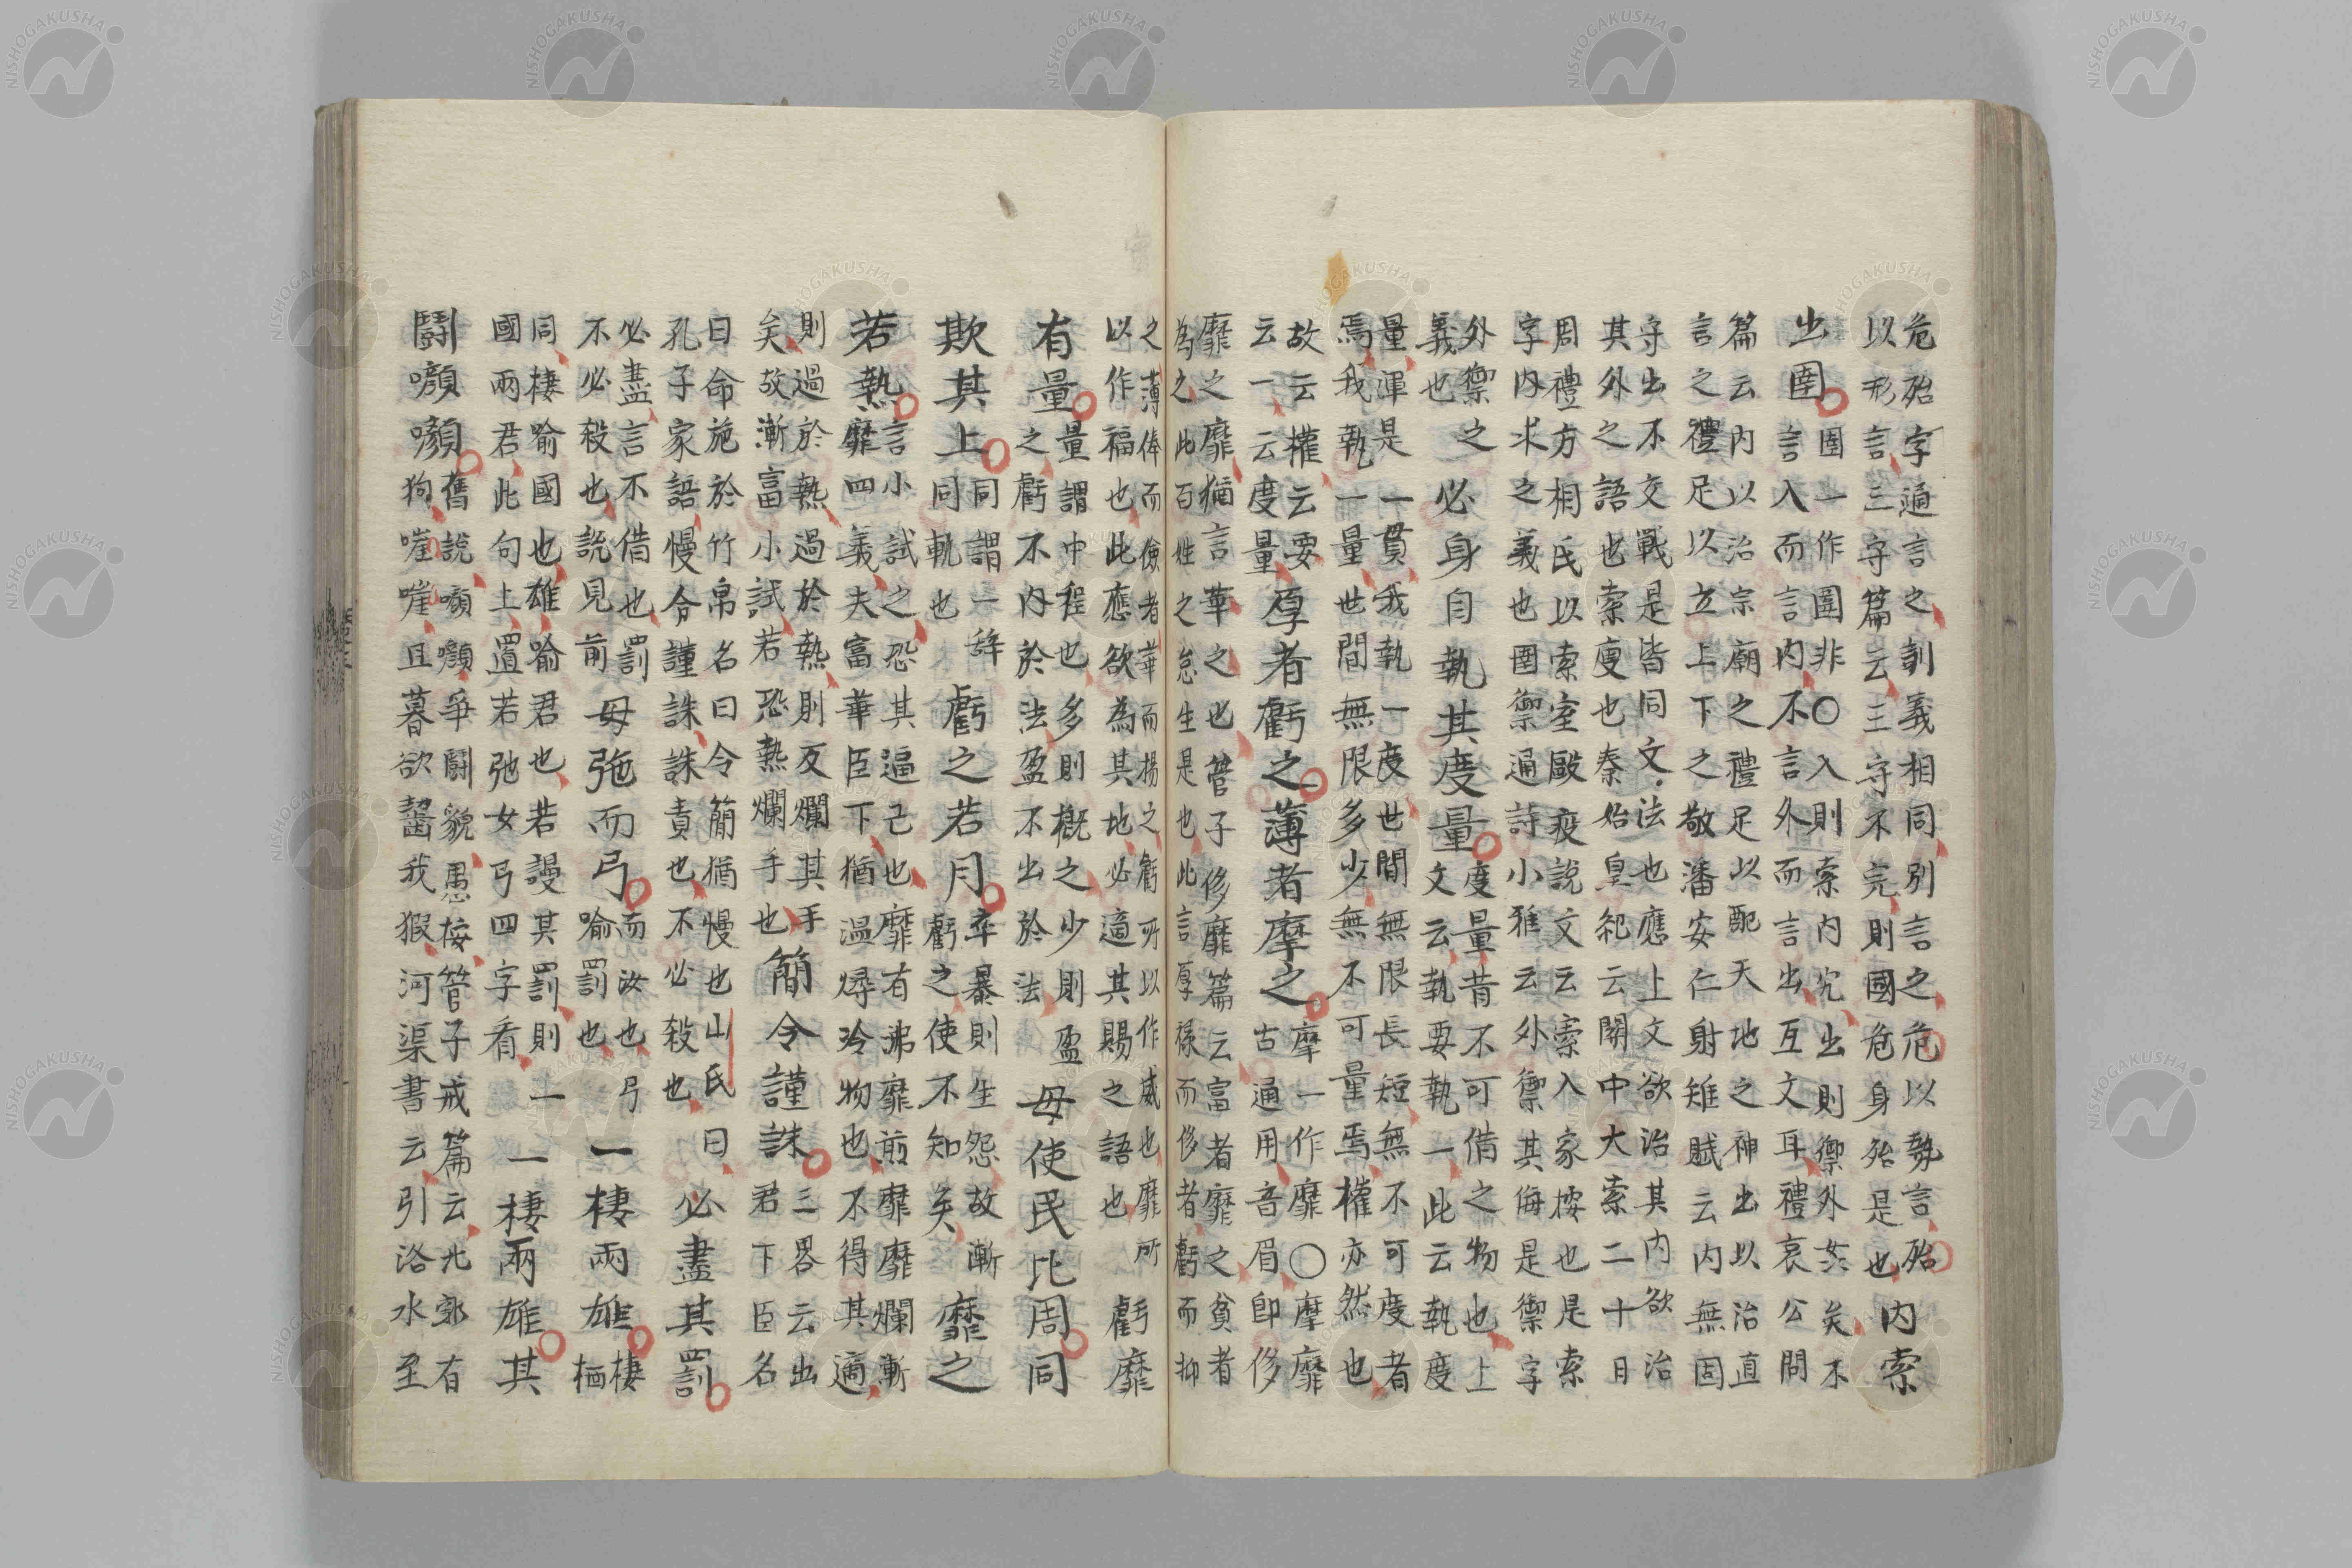 危殆字通言之訓義相同別言之危以勢言殆
以形言三守篇云三守不完則國危身殆是也
內索
出圉
圉一作圄非〇入則索內究出則禦外災矣不
言入而言內不言外而言出互文耳禮哀公問
篇云內以治宗廟之禮足以配天地之神出以治直
言之禮足以立上下之敬潘安仁射雉賦云內無固
守出不交戰是皆同文法也應上文欲治其內欲治
其外之語也索廋也秦始皇紀云關中大索二十日
周禮方相氏以索室毆疫說文云索入家按也是索
字內求之義也圉禦通詩小雅云外禦其侮是禦字
外禦之
義也
必身自執其度量
度量昔不可借之物也上
文云執要執一此云執度
量渾是一貫我執一度世間無限長短無不可度者
焉我執一量世間無限多少無不可量焉權亦然也
故云權云要
云一云度量
厚者虧之薄者靡之
摩一作靡〇摩靡
古通用音眉即侈
靡之靡猶言華之也管子侈靡篇云富者靡之貧者
為之此百姓之怠生是也此言厚祿而侈者虧而抑
之薄俸而儉者華而揚之虧所以作威也靡所
以作福也此應欲為其地必適其賜之語也
虧靡
有量
量謂中程也多則概之少則盈
之虧不內於法盈不出於法
毋使民比周同
欺其上
同謂一辞
同軌也
虧之若月
卒暴則生怨故漸
虧之使不知矣
靡之
若熱
言小試之恐其逼己也靡有沸靡煎靡靡爛漸
靡四義夫富華臣下猶溫燖冷物也不得其適
則過於熱過於熱則反爛其手
矣故漸富小試若恐熱爛手也
簡令謹誅
三畧云出
君下臣名
曰命施於竹帛名曰令簡猶慢也山氏曰
孔子家語慢令謹誅誅責也不必殺也
必盡其罰
必盡言不借也罰
不必殺也説見前
毋弛而弓
而汝也弓
喻罰也
一棲兩雄
棲
栖
同棲喻國也雄喻君也若謾其罰則一
國兩君此句上置若弛女弓四字看
一棲兩雄其
鬪㘖㘖
舊説㘖㘖爭鬪貌愚按管子戒篇云北郭有
狗嘊嘊旦暮欲齧我猳河渠書云引洛水至